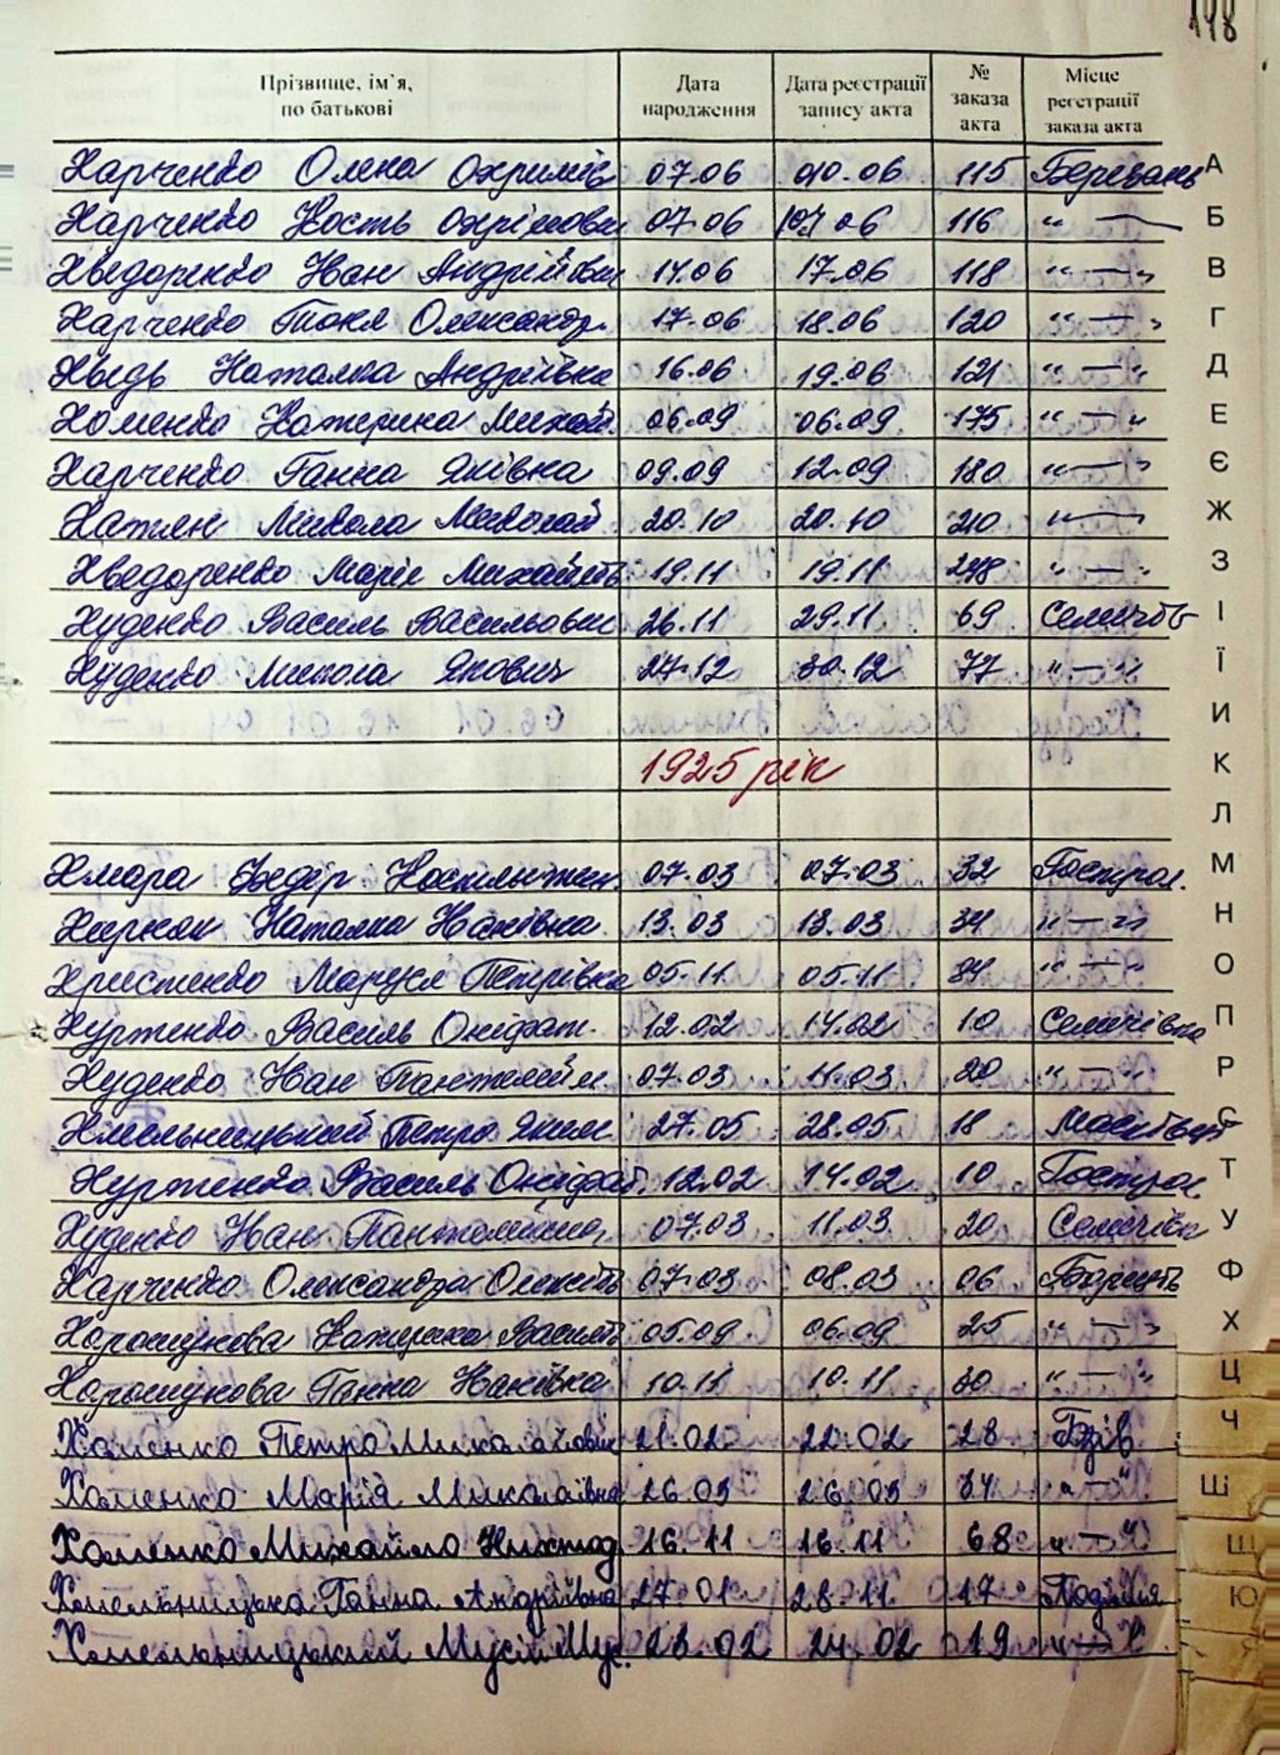 148
Прізвище, ім'я, по батькові Дата народження Дата реєстрації запису акта № заказа акта Місце реєстрації заказа акта
Харченко Олена Охримів 07.06 010.06 115 Березань А
Харченко Кость Охрімови 07.06 06 116 " — Б
Хведоренко Іван Андрійович 14.06 17.06 118 " — " В
Харченко Тоня Олександр. 17.06 18.06 120 " — " Г
Хведь Наталка Андріївка 16.06 19.06 121 " — " Д
Хоменко Катерина Михай. 06.09 06.09 175 " — " Е
Харченко Ганна Яківна 09.09 12.09 180 " — " Є
Микола Миколай 20.10 20.10 210 " — Ж
Хведоренко Марія Михайлів 19.11 19.11 248 " — " З
Худенко Василь Васильович 26.11 29.11 69 І
Худенко Микола Якович 27.12 30.12 77 " — " Ї
И
1925 рік К
Л
Хмара Федір 07.03 07.03 32 Гострол. М
Наталка Іванівна 13.03 13.03 34 " — " Н
Христенко Маруся Петрівна 05.11 05.11 84 " — " О
Хурженко Василь Оніфат. 12.02 14.02 10 Семенівка П
Худенко Іван Пантелейм. 07.03 11.03 20 " — " Р
Хмельницький Петро Яким 27.05 28.05 18 С
Хурженко Василь Оніфат. 12.02 14.02 10 Гострол. Т
Худенко Іван 07.03 11.03 20 Семенівк У
Харченко Олександра Олексіїв 07.03 08.03 06 Ф
Хорошунова Катерина Василів 05.09. 06.09 25 " — " Х
Хорошунова Ганна Іванівка 10.11 10.11 30 " — " Ц
Хоменко Петро Миколайович 21.02 22.02 28 Гзів Ч
Хоменко Марія Миколаївна 26.03 26.03 34 " — " Ш
Хоменко Михайло 16.11 16.11 68 " — " Щ
Хмельницька Ганна Андріївна 27.01 28.11 17 Ю
Хмельницький Мусій Мус. 23.02 24.02 19 " — " Я